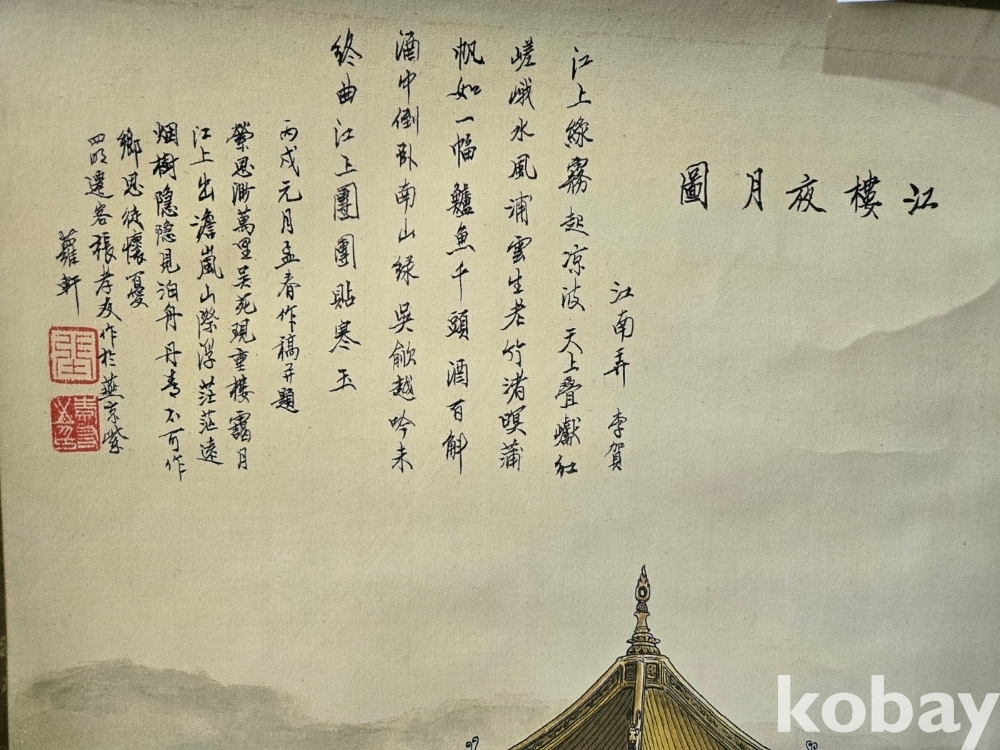 江樓夜月圖
江南弄 李賀
江上綠霧起凉波天上疊巘紅
嵯峨水風浦雲生老竹渚暝蒲
帆如一幅鱸魚千頭酒百斛
酒中倒卧南山綠吳歈越吟未
終曲江上團團貼寒玉
丙戌元月孟春作稿并題
縈思渺萬里吴苑現重樓靄月
江上出澹嵐山際浮茫茫遠
烟樹隱隱見泊舟丹青不可作
鄉思徒懷憂
四明遷客張孝友作於燕京紫
蘿軒
kobay